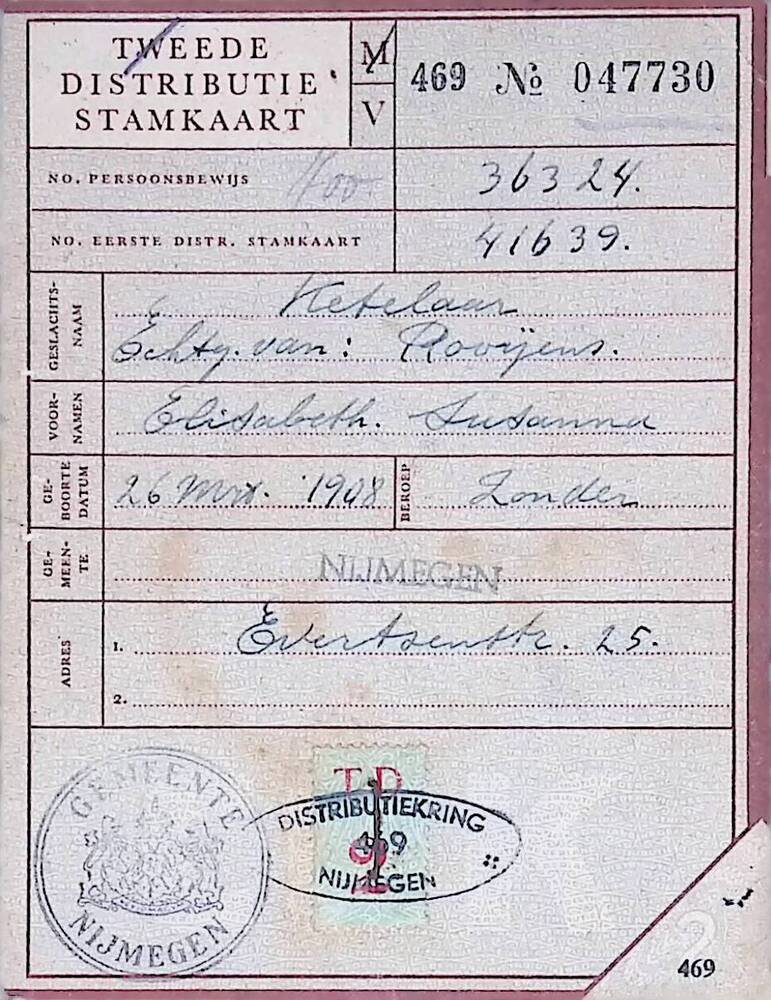 TWEEDE
DISTRIBUTIE
STAMKAART
M
V
469 № 047730
NO. PERSOONSBEWIJS 36324.
NO. EERSTE DISTR. STAMKAART 41639.
GESLACHTS-
NAAM
Ketelaar
Echtg. van: Rooijens.
VOOR-
NAMEN
Elisabeth. Susanna
GE-
BOORTE
DATUM
26 Mrt. 1908
BEROEP
Zonder
GE-
MEEN-
TE
NIJMEGEN
ADRES
1. Evertsenstr. 25.
2.
GEMEENTE
NIJMEGEN
T D
DISTRIBUTIEKRING
469
NIJMEGEN
469